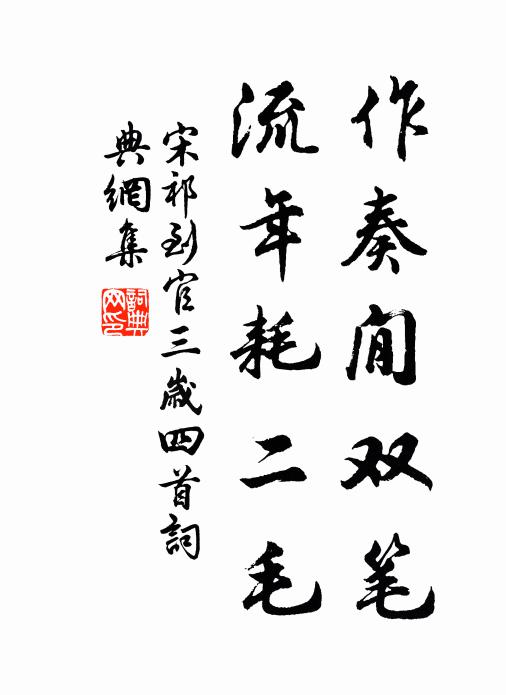 作奏闲双笔
流年耗二毛
宋祁到官三歲四首詞
典網集
詞典網印